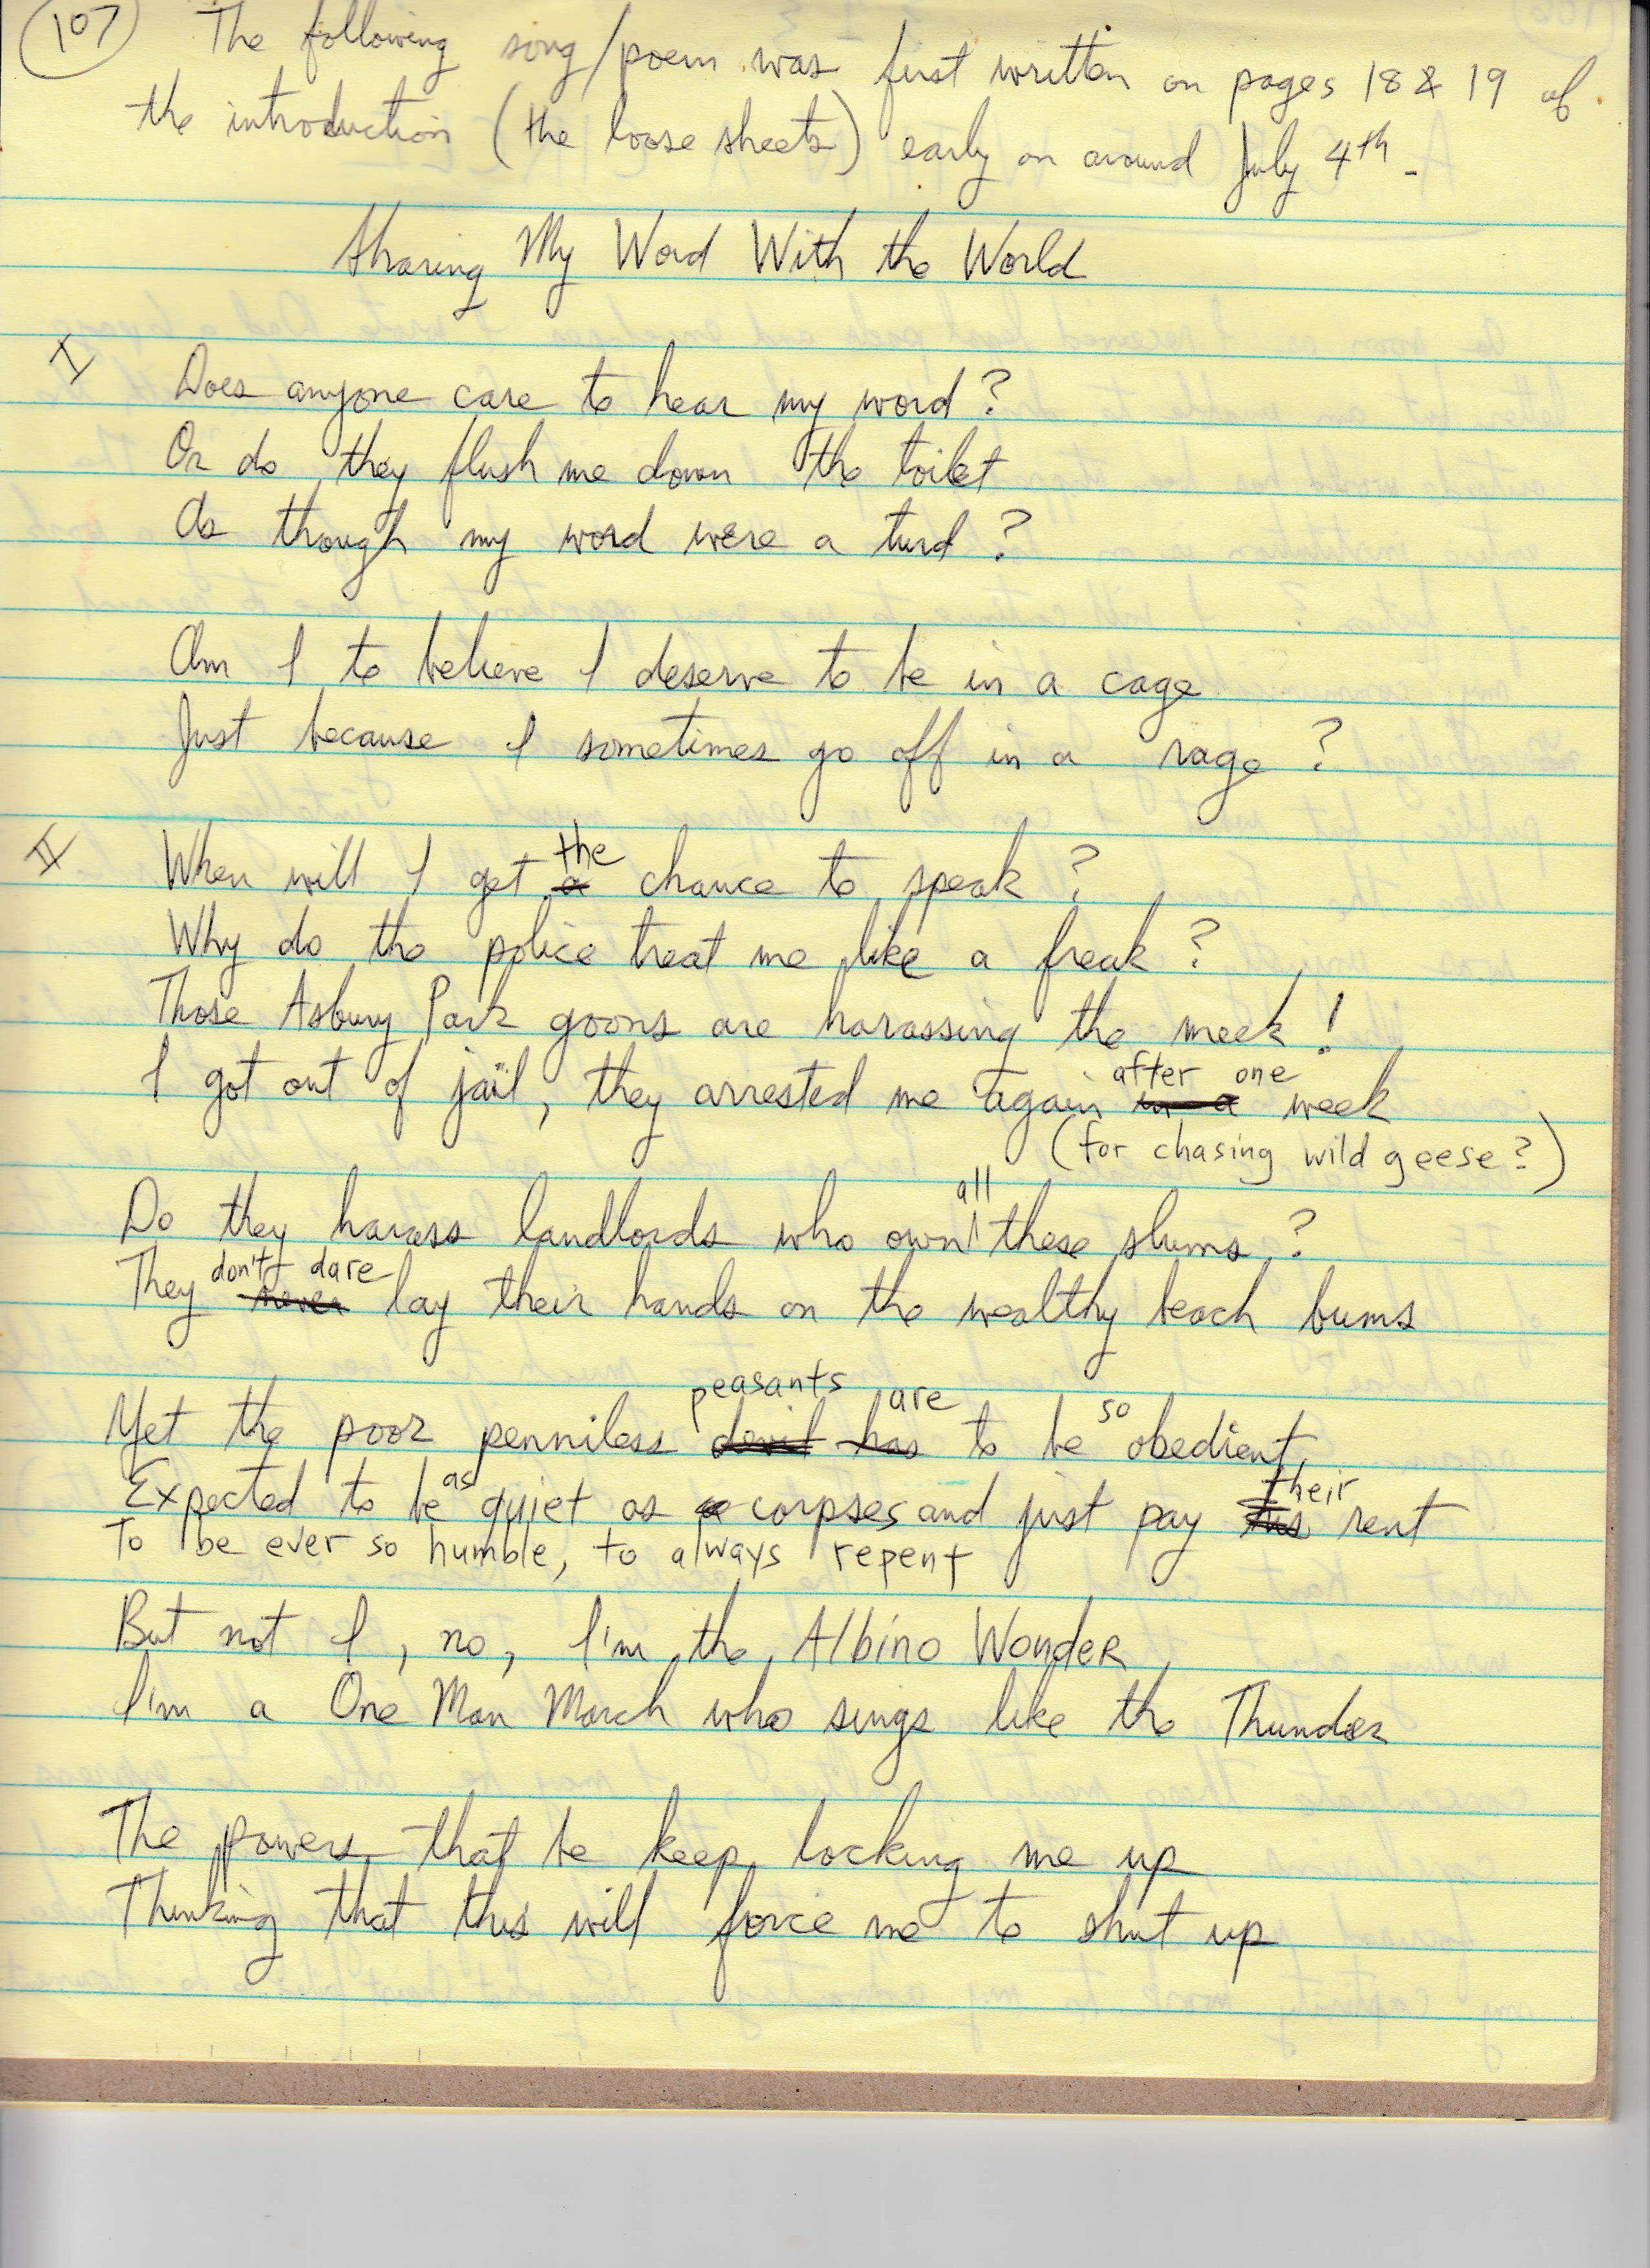 107
The following song/poem was first written on pages 18 & 19 of
the introduction (the loose sheets) early on around July 4th -
Sharing My Word With the World
I
Does anyone care to hear my word?
Or do they flush me down the toilet
As though my word were a turd?
Am I to believe I deserve to be in a cage
Just because I sometimes go off in a rage?
II
When will I get a the chance to speak?
Why do the police treat me like a freak?
Those Asbury Park goons are harassing the meek!
I got out of jail, they arrested me again in a after one week
(for chasing wild geese?)
Do they harass landlords who own all these slums?
They never don't dare lay their hands on the wealthy beach bums
Yet the poor penniless devil has peasants are to be so obedient,
Expected to be as quiet as a corpses and just pay his their rent
To be ever so humble, to always repent
But not I, no, I'm the Albino Wonder
I'm a One Man March who sings like the Thunder
The powers that be keep locking me up
Thinking that this will force me to shut up